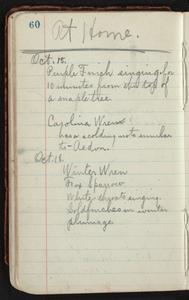 60
At Home.
Oct. 15.
Purple Finch singing for
10 minutes from the top of
a maple tree.
Carolina Wren
has a scolding note similar
to Aedon.
Oct. 18.
Winter Wren
Fox Sparrow
White-throats singing.
Goldfinches in winter
plumage.